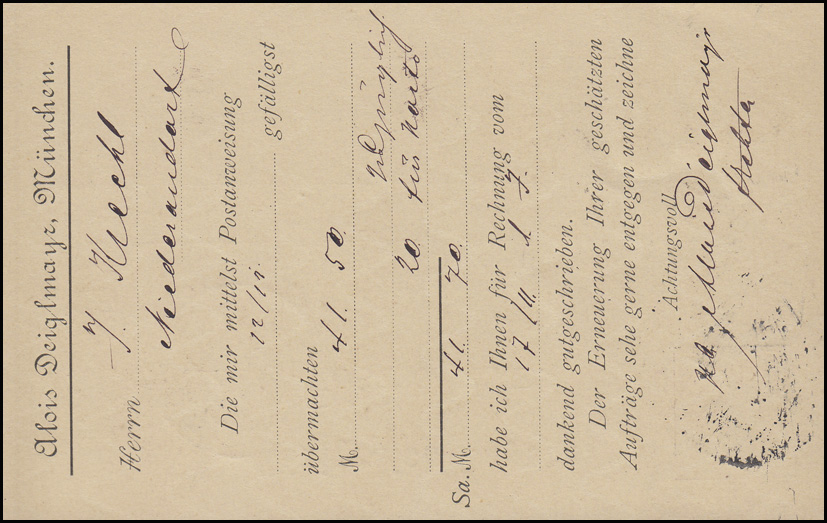 Alois Deiglmayr, München.
Herrn J. Knechl
Niederaudorf
Die mir mittelst Postanweisung
12/11. gefälligst
übermachten
M. 41. 50.
20. für Porto
Sa. M. 41. 70.
habe ich Ihnen für Rechnung vom
17/11. l. J.
dankend gutgeschrieben.
Der Erneuerung Ihrer geschätzten
Aufträge sehe gerne entgegen und zeichne
Achtungsvoll
Alois Deiglmayr